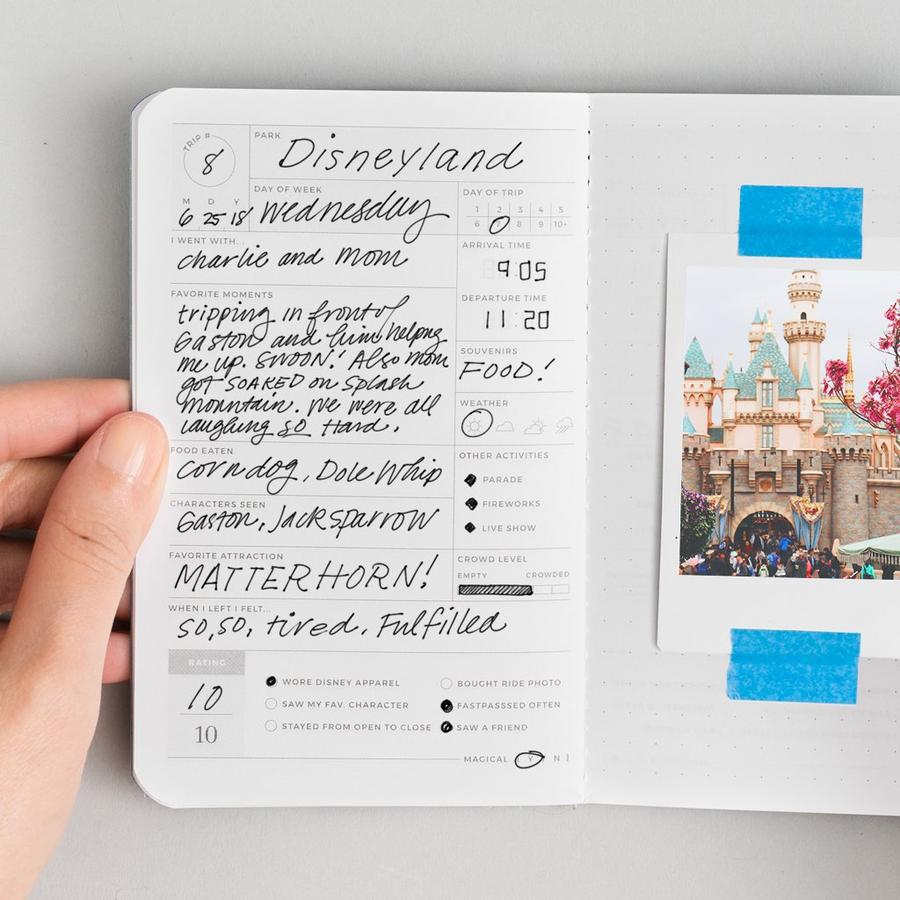 TRIP #
8
PARK
Disneyland
M D Y
6 25 18
DAY OF WEEK
Wednesday
DAY OF TRIP
1 2 3 4 5
6 8 9 10+
I WENT WITH...
charlie and Mom
ARRIVAL TIME
9:05
DEPARTURE TIME
11:20
FAVORITE MOMENTS
tripping in front of
Gaston and him helping
me up. SWOON! Also mom
got SOAKED on Splash
Mountain. We were all
laughing SO Hard.
SOUVENIRS
FOOD!
WEATHER
FOOD EATEN
corn dog, Dole Whip
OTHER ACTIVITIES
PARADE
FIREWORKS
LIVE SHOW
CHARACTERS SEEN
Gaston, Jack Sparrow
FAVORITE ATTRACTION
MATTERHORN!
CROWD LEVEL
EMPTY CROWDED
WHEN I LEFT I FELT...
so, so, tired. Fulfilled
RATING
10
10
WORE DISNEY APPAREL
SAW MY FAV. CHARACTER
STAYED FROM OPEN TO CLOSE
BOUGHT RIDE PHOTO
FASTPASSSED OFTEN
SAW A FRIEND
MAGICAL [ Y N ]